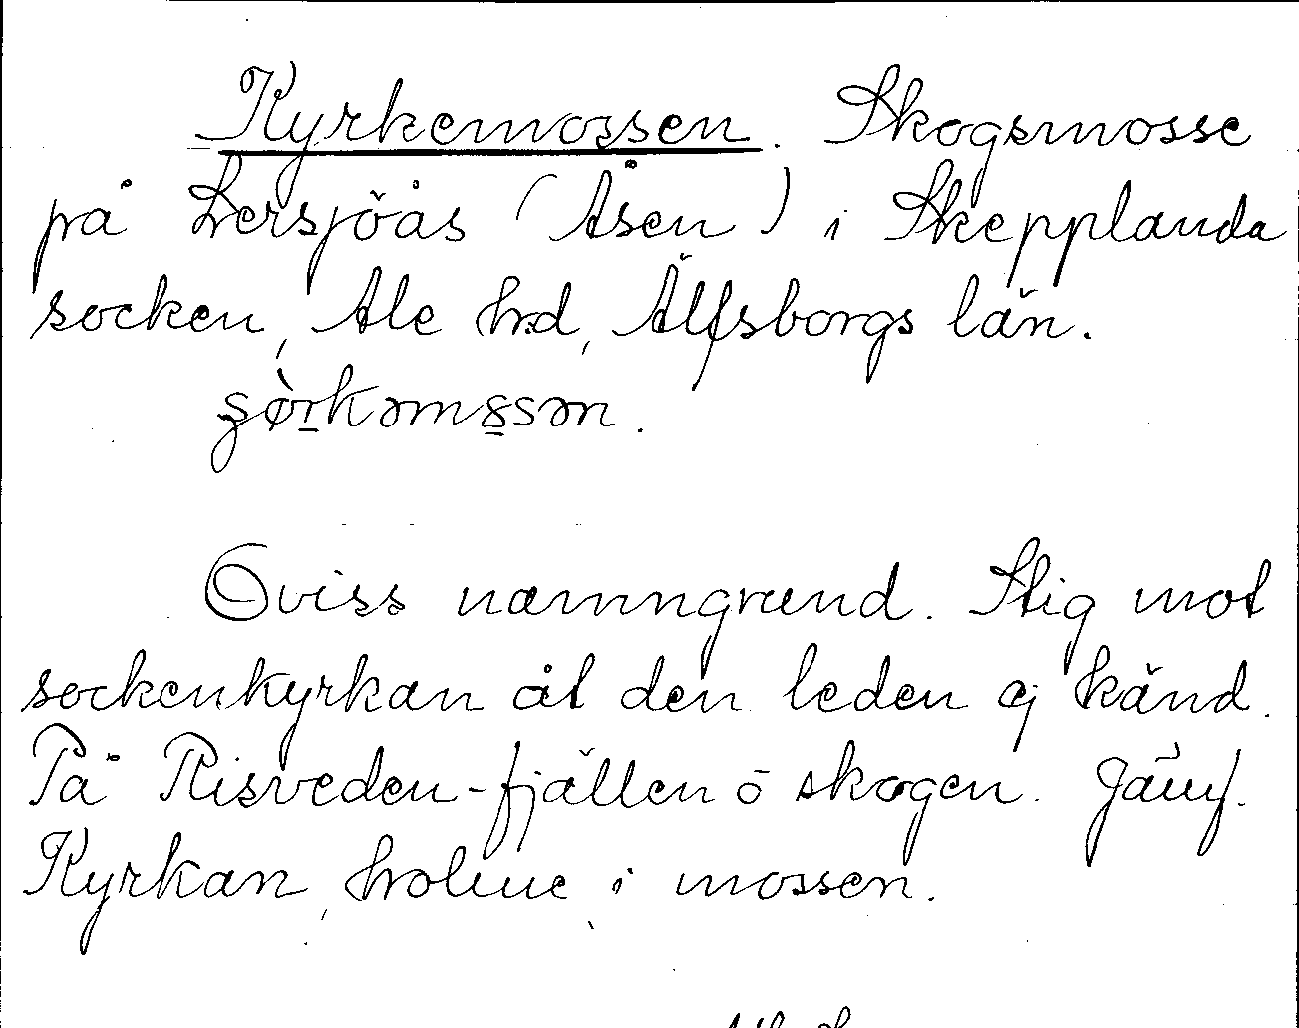 Kyrkemossen. Skogsmosse
på Lersjöås (Åsen) i Skepplanda
socken, Ale hd, Älfsborgs län.
Oviss namngrund. Stig mot
sockenkyrkan åt den leden ej känd.
På Risveden-fjällen o skogen. Jämf.
Kyrkan, holme i mossen.